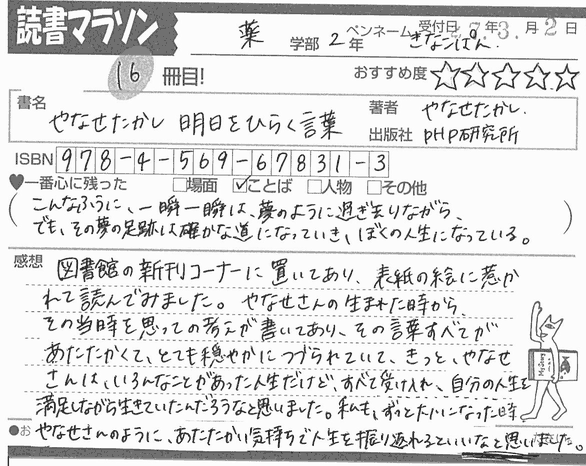 読書マラソン
薬 学部 2年 ペンネーム きなこぱん.
受付日 27年3.月2日
16 冊目!
おすすめ度 ☆☆☆☆☆
書名 やなせたかし 明日をひらく言葉
著者 やなせたかし.
出版社 PHP研究所
ISBN 978-4-569-67831-3
♥一番心に残った □場面 ☑ことば □人物 □その他
(こんなふうに、一瞬一瞬は、夢のように過ぎ去りながら、
でも、その夢の足跡は確かな道になっていき、ぼくの人生になっている。)
感想
図書館の新刊コーナーに置いてあり、表紙の絵に惹か
れて読んでみました。やなせさんの生まれた時から、
その当時を思っての考えが書いてあり、その言葉すべてが
あたたかくて、とても穏やかにつづられていて、きっと、やなせ
さんは、いろんなことがあった人生だけど、すべて受け入れ、自分の人生を
満足しながら生きていたんだろうなと思いました。私も、ずっと大人になった時
●お やなせさんのように、あたたかい気持ちで人生を振り返れるといいなと思いました。